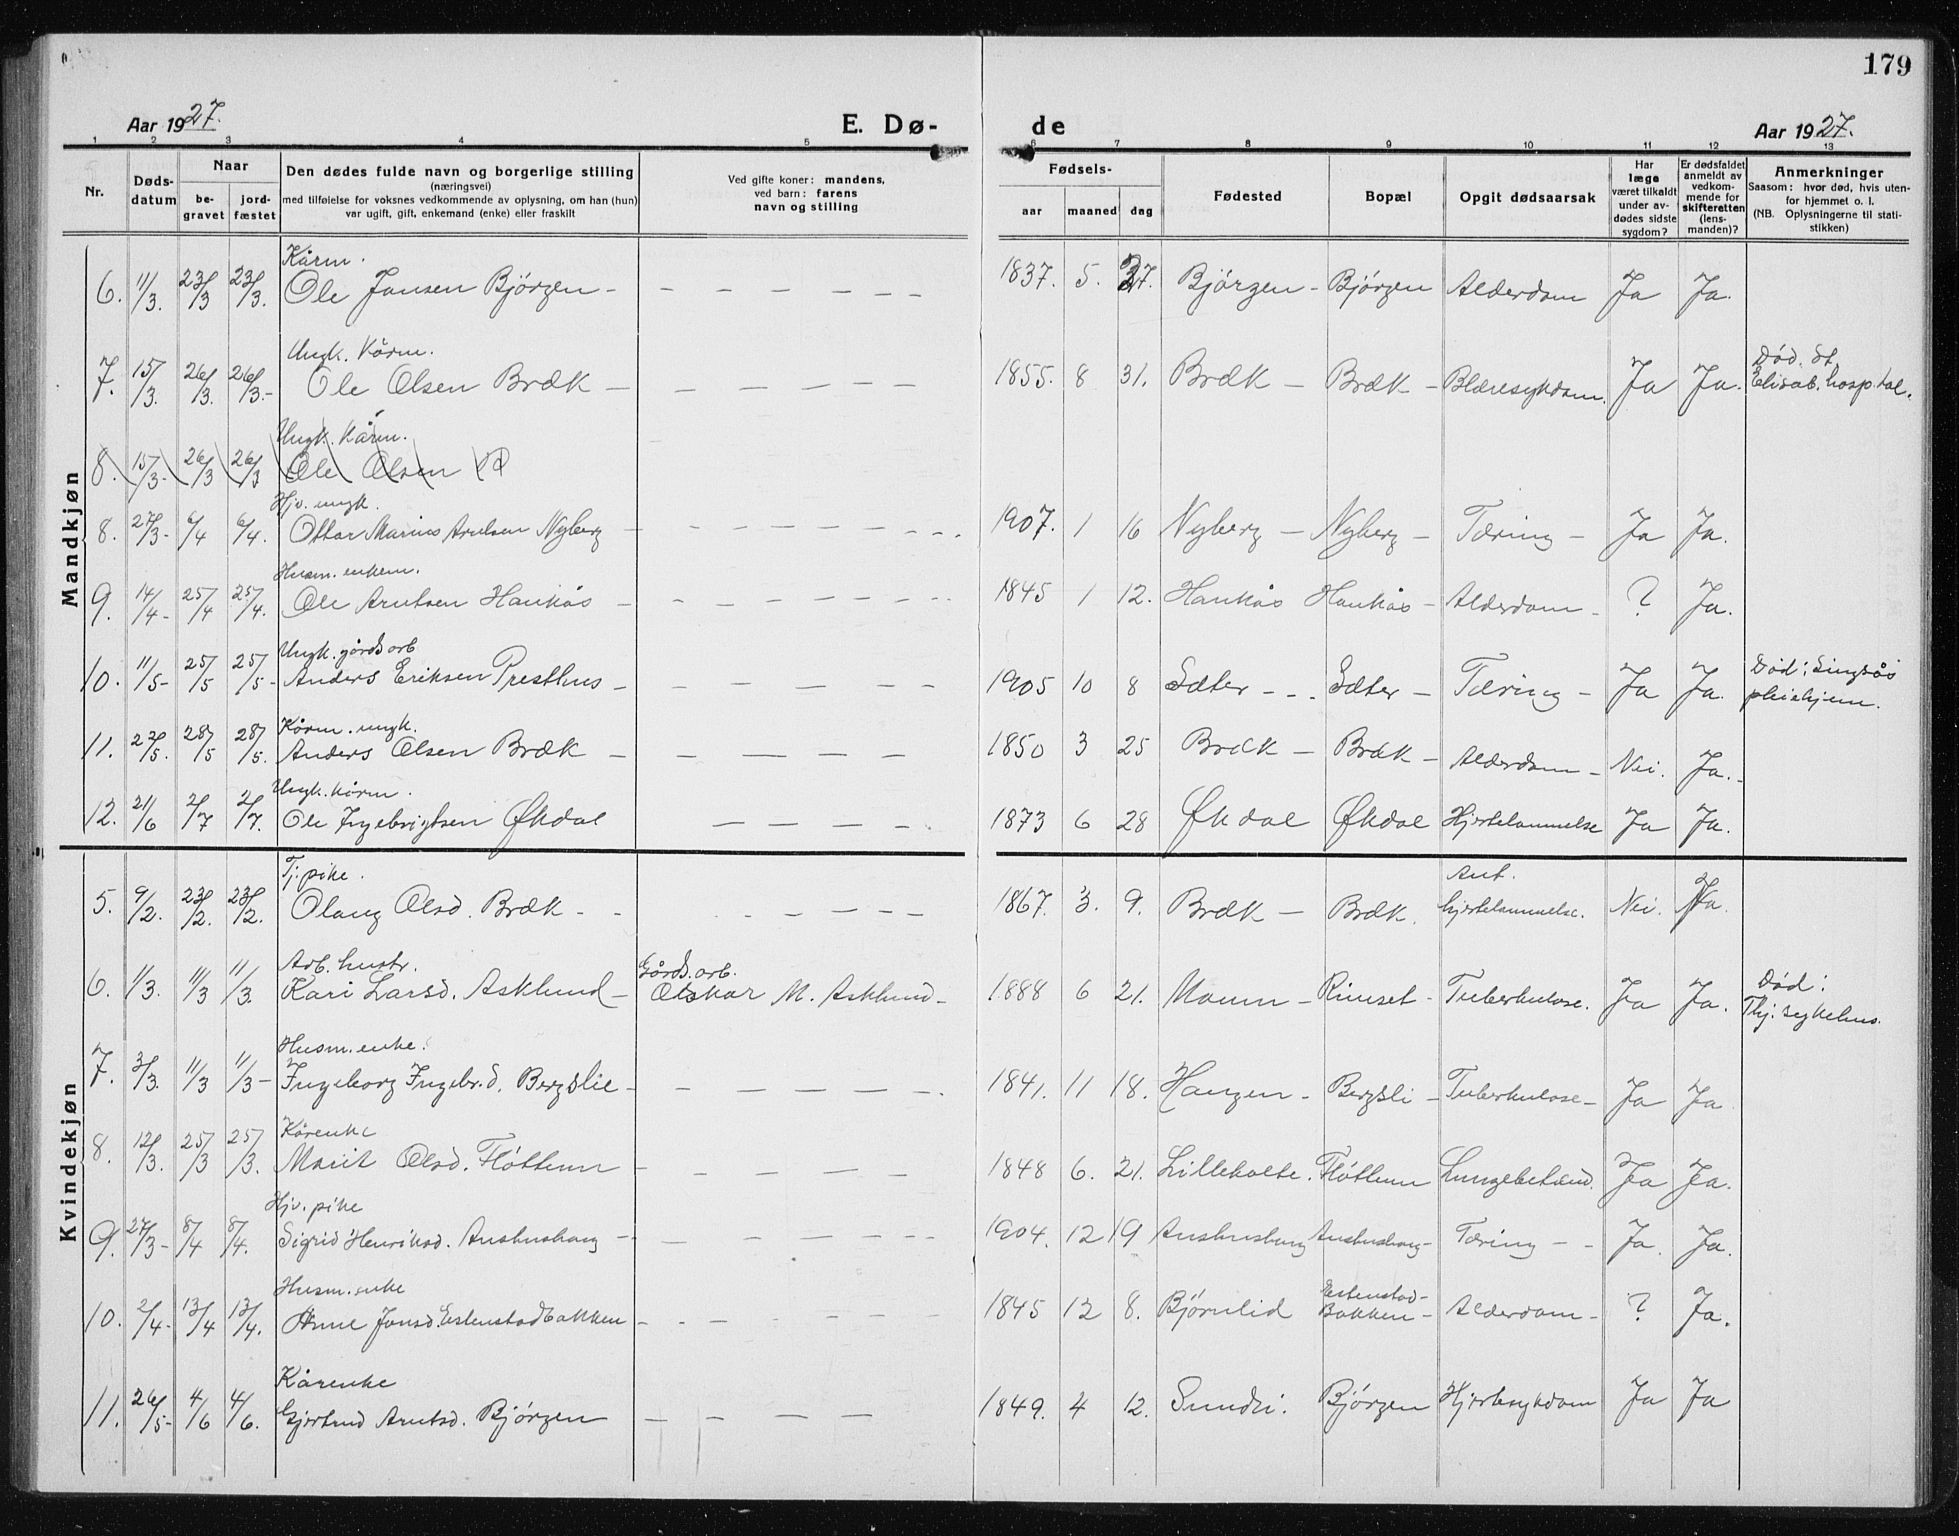 179
Aar 1927.
E. Dø-
de
Aar 1927.
1 2 3 4 5 6 7 8 9 10 11 12 13
Nr.
Døds-
datum
Naar
be-
gravet
jord-
fæstet
Den dødes fulde navn og borgerlige stilling
(næringsvei)
med tilføielse for voksnes vedkommende av oplysning, om han (hun)
var ugift, gift, enkemand (enke) eller fraskilt
Ved gifte koner: mandens,
ved barn: farens
navn og stilling
Fødsels-
aar maaned dag
Fødested
Bopæl
Opgit dødsaarsak
Har
læge
været tilkaldt
under av-
dødes sidste
sygdom?
Er dødsfaldet
anmeldt av
vedkom-
mende for
skifteretten
(lens-
manden)?
Anmerkninger
Saasom: hvor død, hvis uten-
for hjemmet o. l.
(NB. Oplysningerne til stati-
stikken)
Mandkjøn
Kårm.
6. 11/3. 23/3 23/3. Ole Jonsen Bjørgen - 1837. 5. 27. Bjørgen - Bjørgen Alderdom Ja Ja.
Ungk. Kårm.
7. 15/3. 26/3. 26/3.- Ole Olsen Bræk - 1855. 8 31. Bræk - Bræk - Blæresykdom. Ja Ja. Død. St.
Elisab. hospital.
Ungk. Kårm.
8 15/3- 26/3 26/3 Ole Olsen
Hjv. ungk.
8. 27/3- 6/4 6/4. Ottar Marius Arntsen Nyberg - 1907. 1 16 Nyberg - Nyberg - Tæring - Ja Ja.
Husm. enkem.
9. 14/4- 25/4 25/4. Ole Arntsen Haukås - 1845 1 12. Haukås Haukås - Alderdom - ? Ja.
Ungk. gårdsarb
10. 11/5- 25/5 25/5- Anders Eriksen Presthus - 1905 10 8 Sæter - - . Sæter - Tæring - Ja Ja. Død: Singsås
pleiehjem.
Kårm. ungk.
11. 23/5. 28/5 28/5. Anders Olsen Bræk - 1850 3 25 Bræk - Bræk - Alderdom - Nei. Ja.-
Ungk. kårm.
12. 21/6 2/7 2/7. Ole Ingebrigtsen Økdal 1873 6 28 Økdal Økdal Hjertelammelse Ja Ja.
Kvindekjøn
Tj. pike.
5. 9/2. 23/2. 23/2. Olaug Olsd. Bræk - 1867. 3. 9. Bræk - Bræk. Ant.
hjertelammelse. Nei. Ja.
Arb. hustr.
6. 1/3. 11/3 11/3. Kari Larsd. Asklund - Gårds. arb.
Oskar M. Asklund - 1888 6 21. Moum - Rimset - Tuberkulose. Ja Ja. Død:
Thj. sykehus.
Husm. enke.
7. 3/3. 11/3 11/3 - Ingeborg Ingebr.d. Bergslie - 1841. 11 18. Haugen - Bergsli - Tuberkulose - Ja Ja
Kårenke
8. 12/3. 25/3 25/3. Marit Olsd. Fløttum - 1848 6. 21. Lilleholte. Fløttum Lungebetænd. Ja Ja.
Hjv. pike
9. 27/3- 8/4 8/4. Sigrid Henriksd. Aushushaug - 1904. 12 19 Aushushaug Aushushaug - Tæring - - Ja. Ja.
Husm. enke
10. 2/4- 13/4 13/4. Anne Jonsd. Estenstadbakken - 1845 12 8. Bjørnlid Estenstad-
Bakken - Alderdom - ? Ja.
Kårenke
11. 26/5- 4/6 4/6. Gjertrud Arntsd. Bjørgen - 1849. 4 12. Sundli. Bjørgen Hjertesykdom Ja Ja